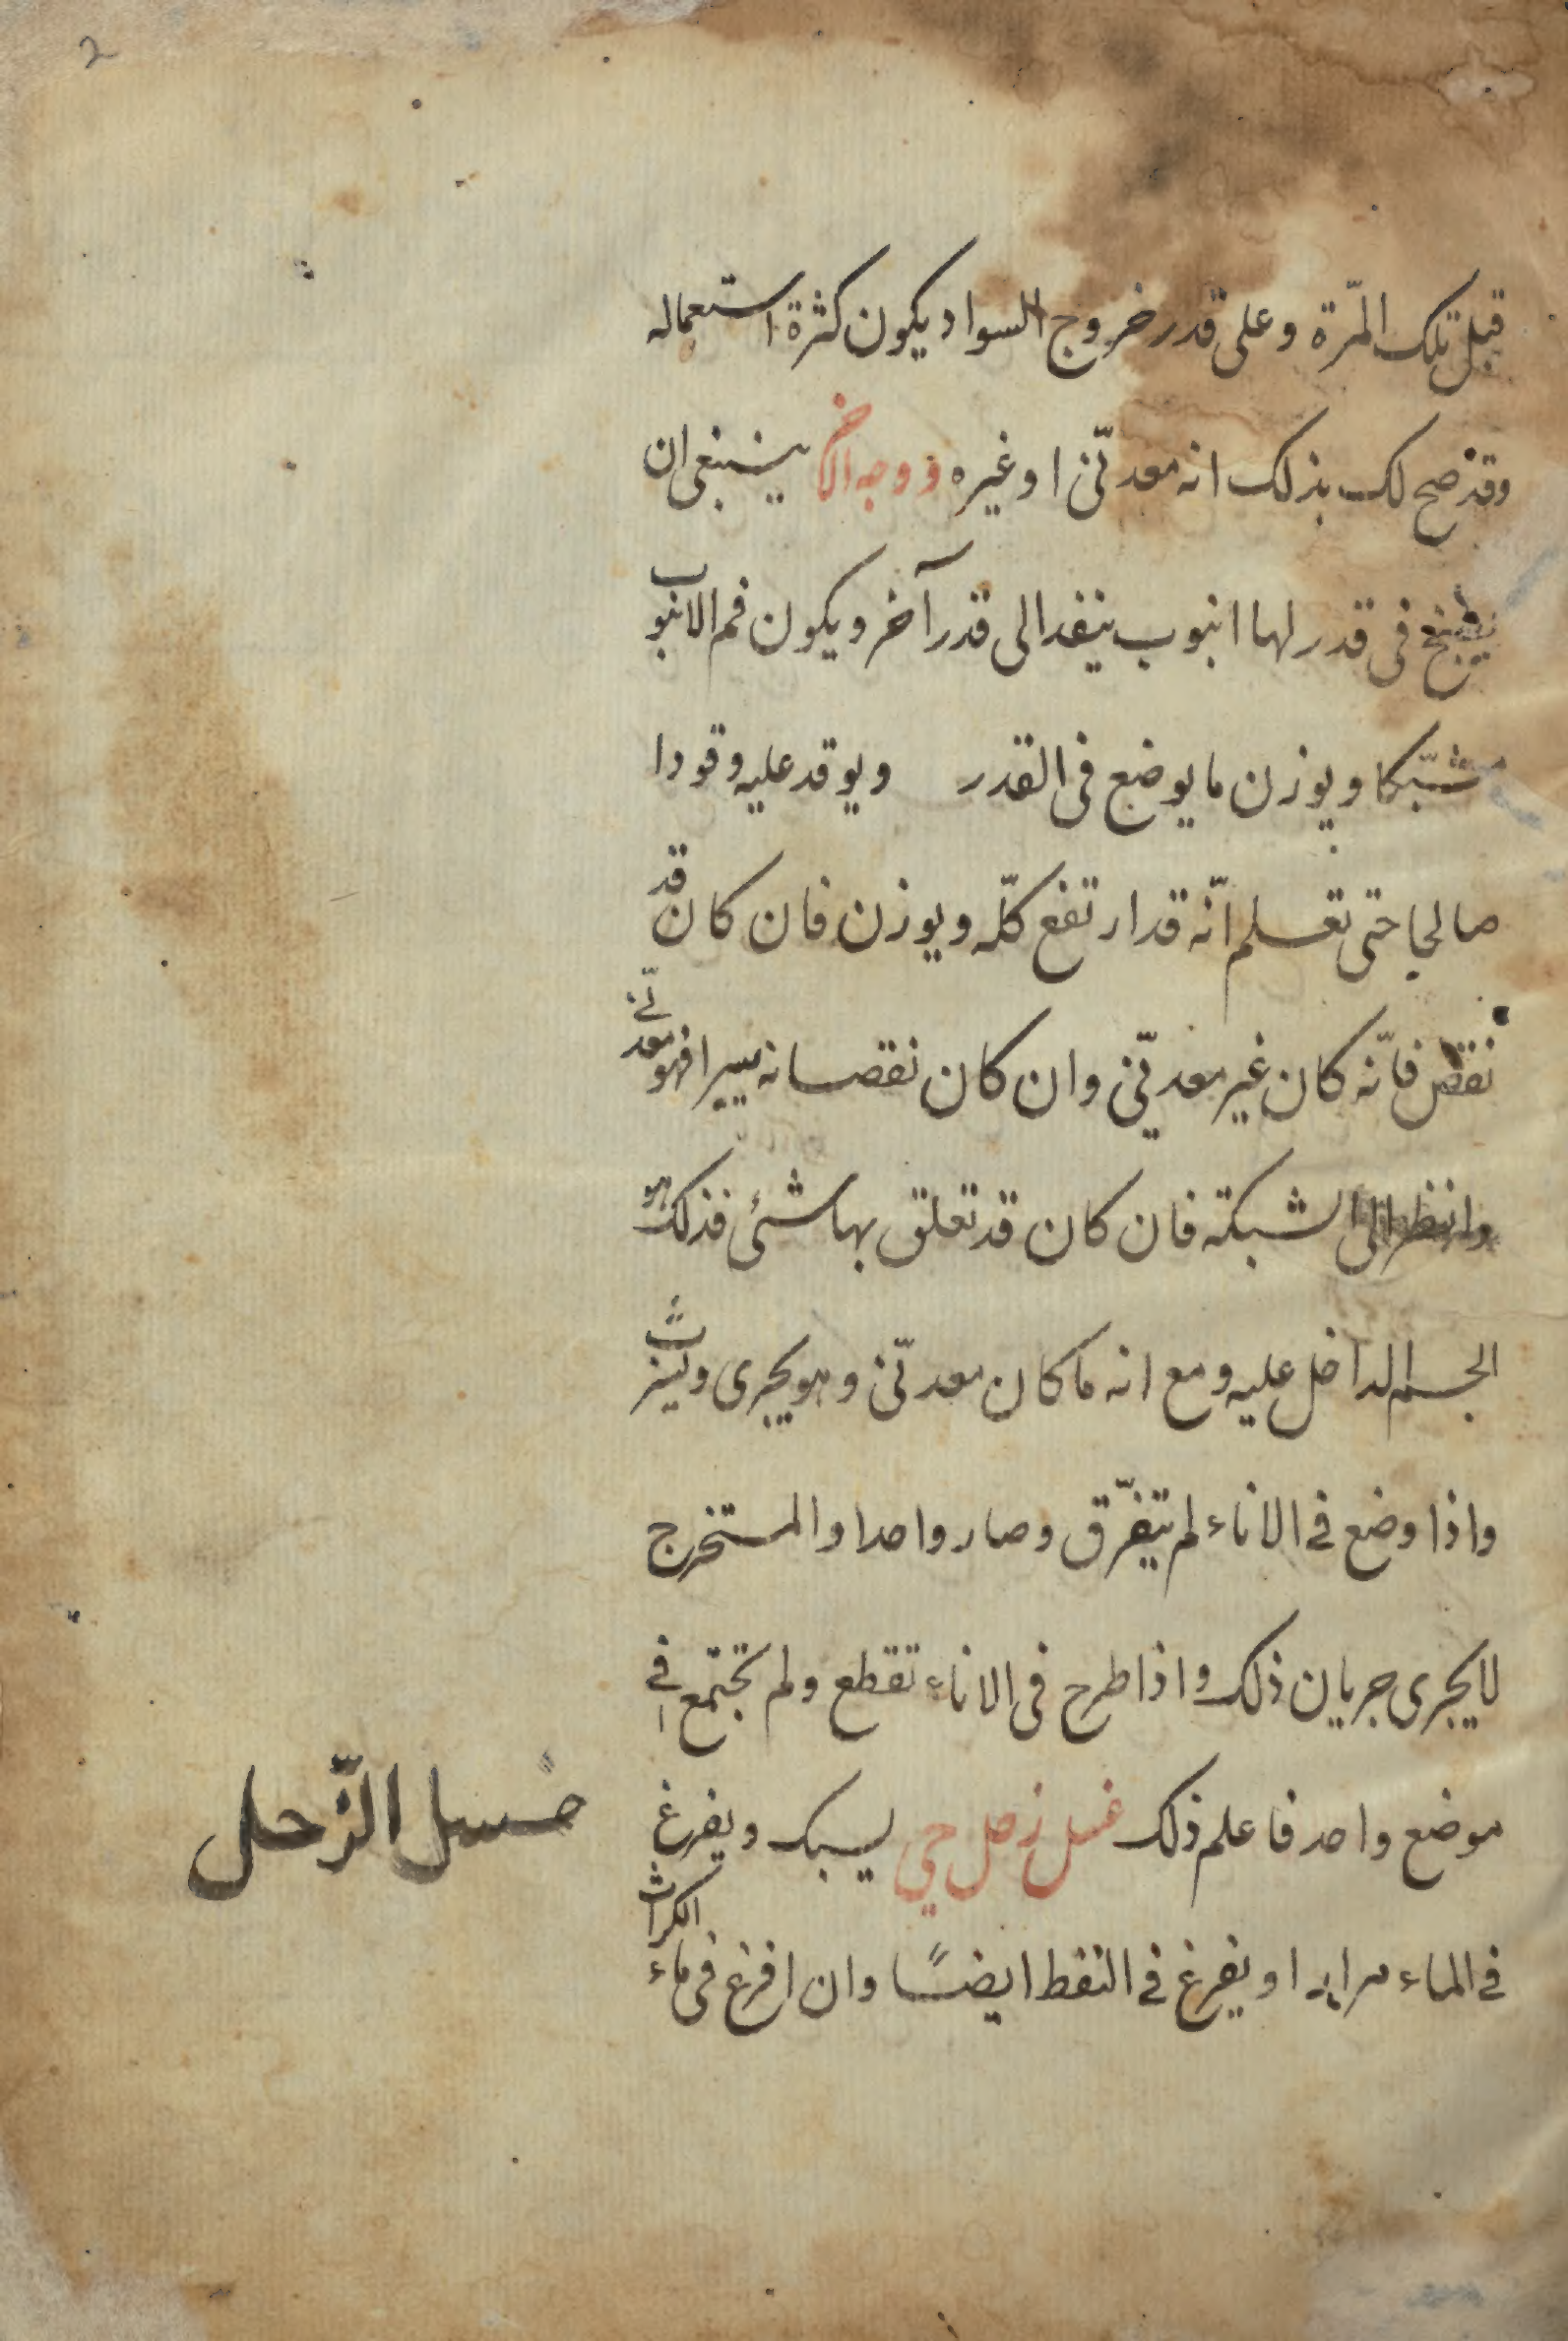 2
قبل تلك المرّة وعلى قدر خروج السواد يكون كثرة استعماله
وقد صح لك بذلك انه معدنّى او غيره ووجه الاخر ينبغى ان
يطبخ فى قدر لها انبوب ينفد الى قدر آخر ويكون فم الانبوب
مشبّكا ويوزن ما يوضع فى القدر ويوقد عليه وقودا
صالحا حتى تعلم انّه قد ارتفع كلّه ويوزن فان كان قد
نقص فانّه كان غير معدنّى وان كان نقصانه يسيرا فهو معدنّى
وانظر الى الشبكة فان كان قد تعلق بها شئى فذلك هو
الجسم الداخل عليه ومع انه ما كان معدنّى وهو يجرى
واذا وضع فى الاناء لم يتفرّق وصار واحدا والمستخرج
لا يجرى جريان ذلك واذا طرح فى الاناء تقطع ولم تجتمع فى
موضع واحد فاعلم ذلك غسل زحل حي يسبك ويفرغ
غسل الزّحل
فى الماء مرارا او يفرغ فى النفط ايضًا وان افرغ فى ماء الكراث